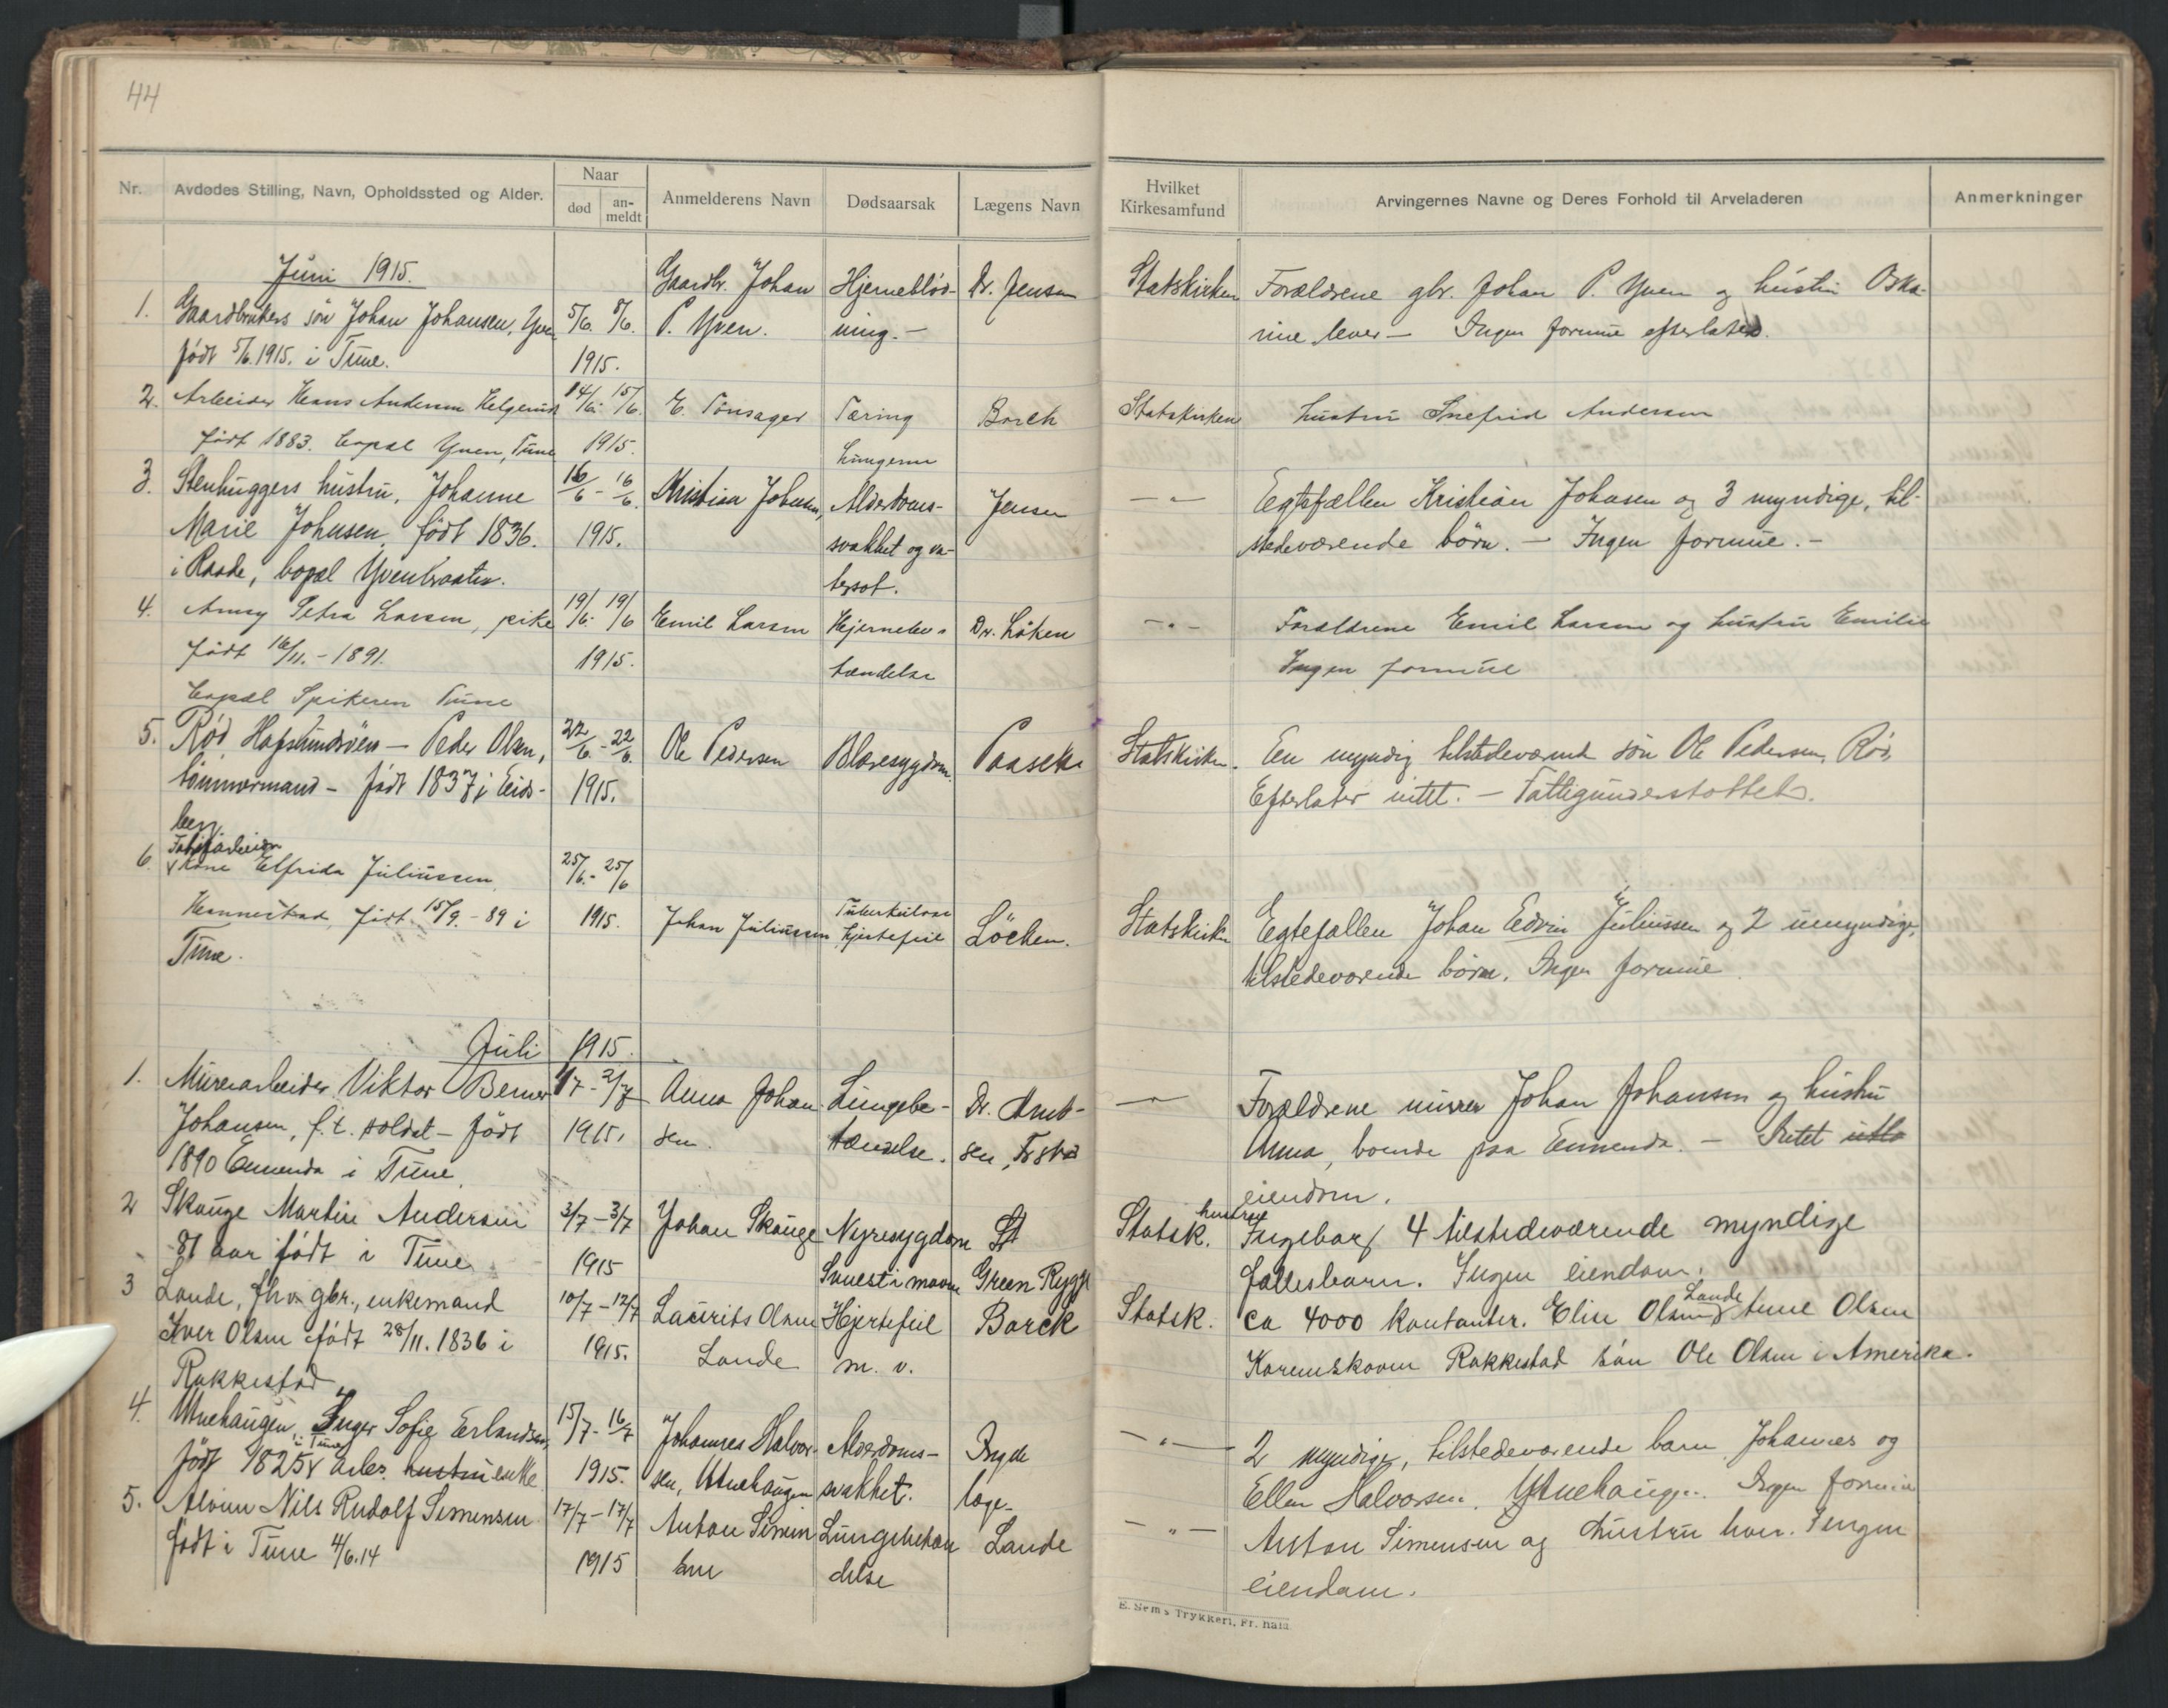 44
Nr. Avdødes Stilling, Navn, Opholdssted og Alder. Naar død an-meldt Anmelderens Navn Dødsaarsak Lægens Navn Hvilket Kirkesamfund Arvingernes Navne og Deres Forhold til Arveladeren Anmerkninger
Juni 1915. Gaardbr. Johan Hjerneblød- Dr. Jensen Statskirken Forældrene gbr. Johan P. Yven og hustru Oska-
1. Gaardbrukers søn Johan Johansen, Yven 5/6. 8/6. P. Yven. ning. — rine lever — Ingen formue efterlates.
født 5/6.1915. i Tune. 1915.
2. Arbeider Hans Andersen Helgerud 14/6. 15/6. E. Tonsager Tæring Borch Statskirken hustru Snefrid Andersen
født 1883. bopæl Yven, Tune 1915. Lungerne
3. Stenhuggers hustru, Johanne 16/6 - 16/6. Kristian Johnsen, Alderdoms- Jensen — " — Egtefællen Kristian Johnsen og 3 myndige, til-
Marie Johnsen, født 1836. 1915. svakhet og va- stedeværende børn. — Ingen formue. -
i Raade, bopæl Yvenbraaten. tersot.
4. Anny Petra Larsen, pike 19/6. 19/6 Emil Larsen Hjernebe- Dr. Løken - " - Forældrene Emil Larsen og hustru Emilie
født 16/11. - 1891. 1915. tændelse Ingen formue
bopæl Spikeren Tune
5. Rød, Hafslundsøen — Peder Olsen, 22/6. - 22/6. Ole Pedersen Blæresygdom. Paasche Statskirken. En myndig tilstedeværende søn Ole Pedersen, Rød,
tømmermand - født 1837 i Eids- 1915. Efterlater intet. — Fattigunderstøttet.
berg
Fabrikarbeider
6. kone Elfrida Juliussen, 25/6. - 25/6
Hannestad, født 15/9. - 89 i 1915. Johan Juliussen Tuberkulose Hjertefeil Löchen. Statskirken Egtefællen Johan Edvin Juliussen og 2 umyndige,
Tune. tilstedeværende børn. Ingen formue.
Juli 1915.
1. Murerarbeider Viktor Berner 1/7 - 2/7 Anna Johan- Lungebe- Dr. Arnt- — " — Forældrene murer Johan Johansen og hustru
Johansen, f.t. soldat - født 1915. sen. tændelse. sen, Fr.stad Anna, boende paa Enmenda. — Intet
1890 Enmenda i Tune. eiendom.
2 Skauge Martin Andersen 3/7 - 3/7 Johan Skauge Nyresygdom St Statsk. hustrue Ingebarg 4 tilstedeværende myndige
81 aar født i Tune 1915 Green Rygge fællesbarn. Ingen eiendom.
3 Lande, fhv. gbr., enkemand 10/7 - 12/7 Laurits Olsen Hjertefeil Borch Statsk. ca 4000 kontanter. Elise Olsen Lande tune Olsen
Iver Olsen født 28/11. 1836 i 1915. Lande m. v. Karenskoven Rakkestad sön Ole Olsen i Amerika.
Rakkestad
4. Utnehaugen, Inger Sofie Erlandsen, 15/7 - 16/7 Johannes Halvor- Alderdoms- Ingen — " — 2 myndige, tilstedeværende barn, Johannes og
født 1825 i Tune arbs. hustru enke 1915. sen, Utnehaugen svakhet. læge. Ellen Halvorsen. Utnehaugen. Ingen formue
5. Alvin Nils Rudolf Simensen 17/7 - 17/7 Anton Simen Lungebetæn Lande — " — Anton Simensen og hustru lever. Ingen
født i Tune 4/6.14 1915 sen delse eiendom.
E. Sems Trykkeri, Fr.hald